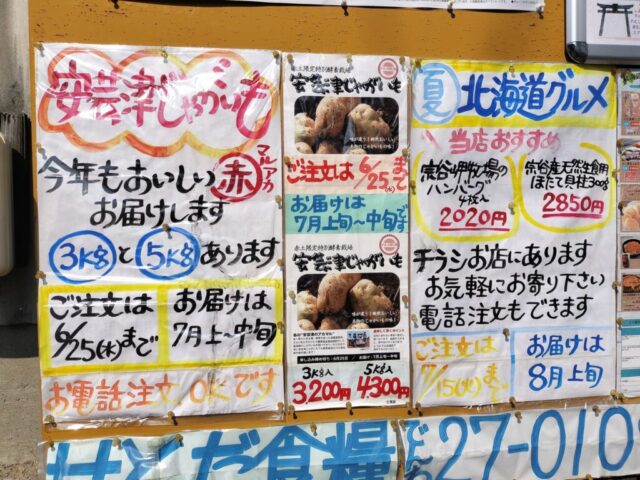 安芸津じゃがいも
今年もおいしい赤マルアカ
お届けします
3K名と5K名あります
ご注文は
6/25(木)まで
お届けは
7月上〜中旬
お電話注文OKです
赤土限定特別酵素栽培
安芸津じゃがいも
ご注文は6/25(木)まで
お届けは
7月上旬〜中旬です
赤土限定特別酵素栽培
安芸津じゃがいも
3K名入
3,200円
5K名入
4,300円
夏北海道グルメ
当店おすすめ
宗谷岬牧場の
ハンバーグ
4枚入
2020円
宗谷産天然生食用
ほたて貝柱300g
2850円
チラシお店にあります
お気軽にお寄り下さい
電話注文もできます
ご注文は
7/15(水)まで
お届けは
8月上旬
せとだ食糧
27-010